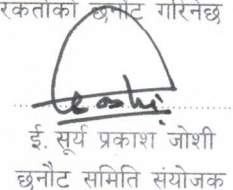 रकर्ताको छनौट गरिनेछ
ई. सूर्य प्रकाश जोशी
छनौट समिति संयोजक